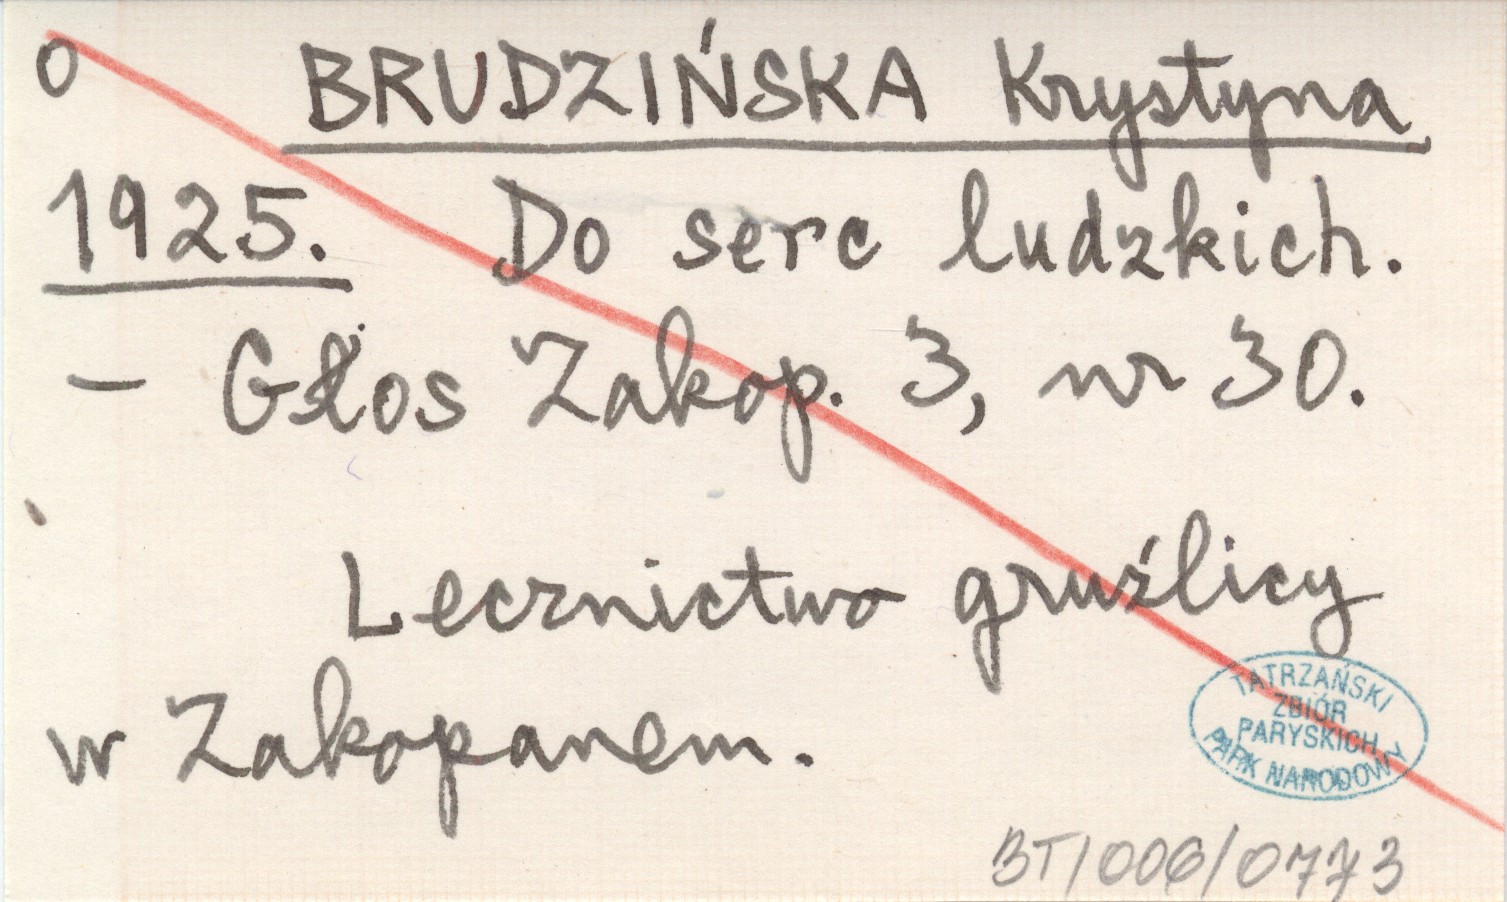 O BRUDZIŃSKA Krystyna
1925. Do serc ludzkich.
– Głos Zakop. 3, nr 30.
Lecznictwo gruźlicy
w Zakopanem.
TATRZAŃSKI
ZBIÓR
PARYSKICH
PARK NARODOWY
BT/006/0773